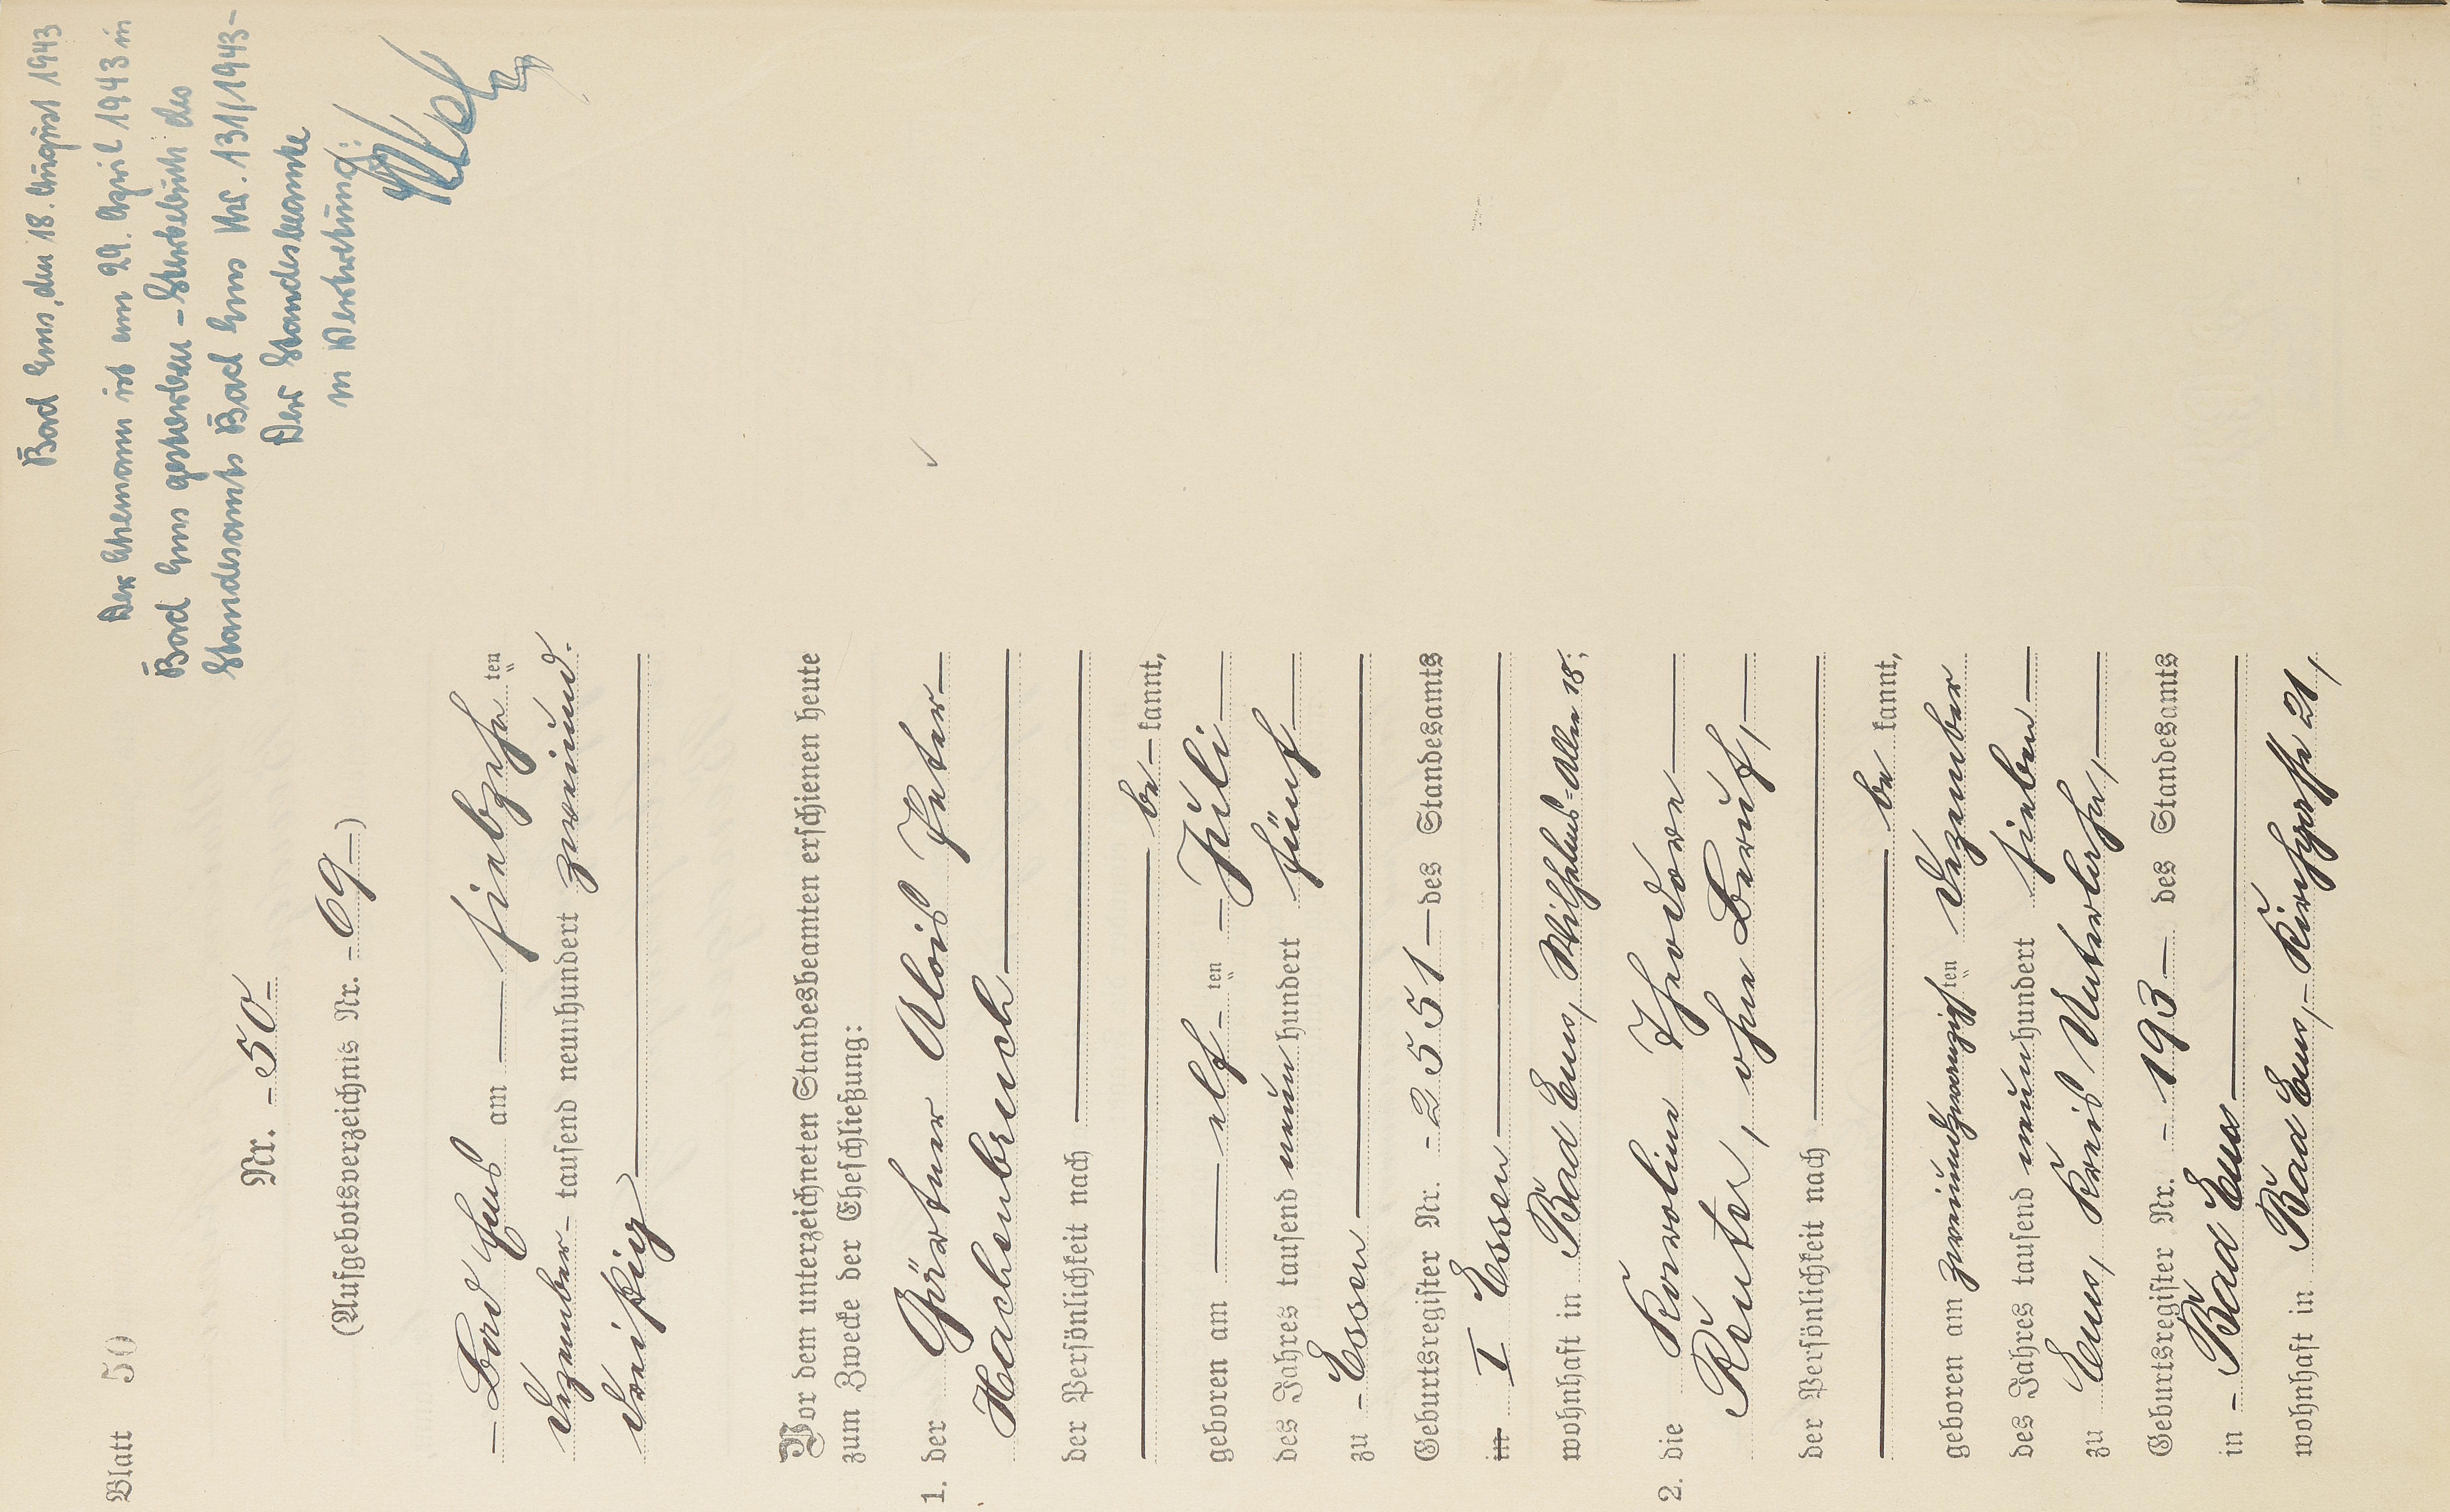 Bad Ems, den 18. August 1943
Der Ehemann ist am 29. April 1943 in
Bad Ems gestorben – Sterbebuch des
Standesamts Bad Ems Nr. 131/1943 –
Der Standesbeamte
in Vertretung:
Blatt 50
Nr. – 50 –
(Aufgebotsverzeichnis Nr. – 69 –)
– Bad Ems am – siebzehn ten
Dezember – tausend neunhundert zweiund-
dreißig
Vor dem unterzeichneten Standesbeamten erschienen heute
zum Zwecke der Eheschließung:
1. der Gärtner Alois Peter –
Hachenbruch –
der Persönlichkeit nach
be – kannt,
geboren am – elf – ten – Juli –
des Jahres tausend neun hundert fünf –
zu – Essen –
Geburtsregister Nr. – 2551 – des Standesamts
in I Essen –
wohnhaft in Bad Ems, Wilhelms-Allee 18;
2. die Karoline Theodore –
Reuter, ohne Beruf, –
der Persönlichkeit nach
be kannt,
geboren am zweiundzwanzigsten Dezember
des Jahres tausend neun hundert sieben –
zu Ems, Kreis Unterlahn, –
Geburtsregister Nr. – 193 – des Standesamts
in – Bad Ems –
wohnhaft in Bad Ems, – Kirchgasse 21,